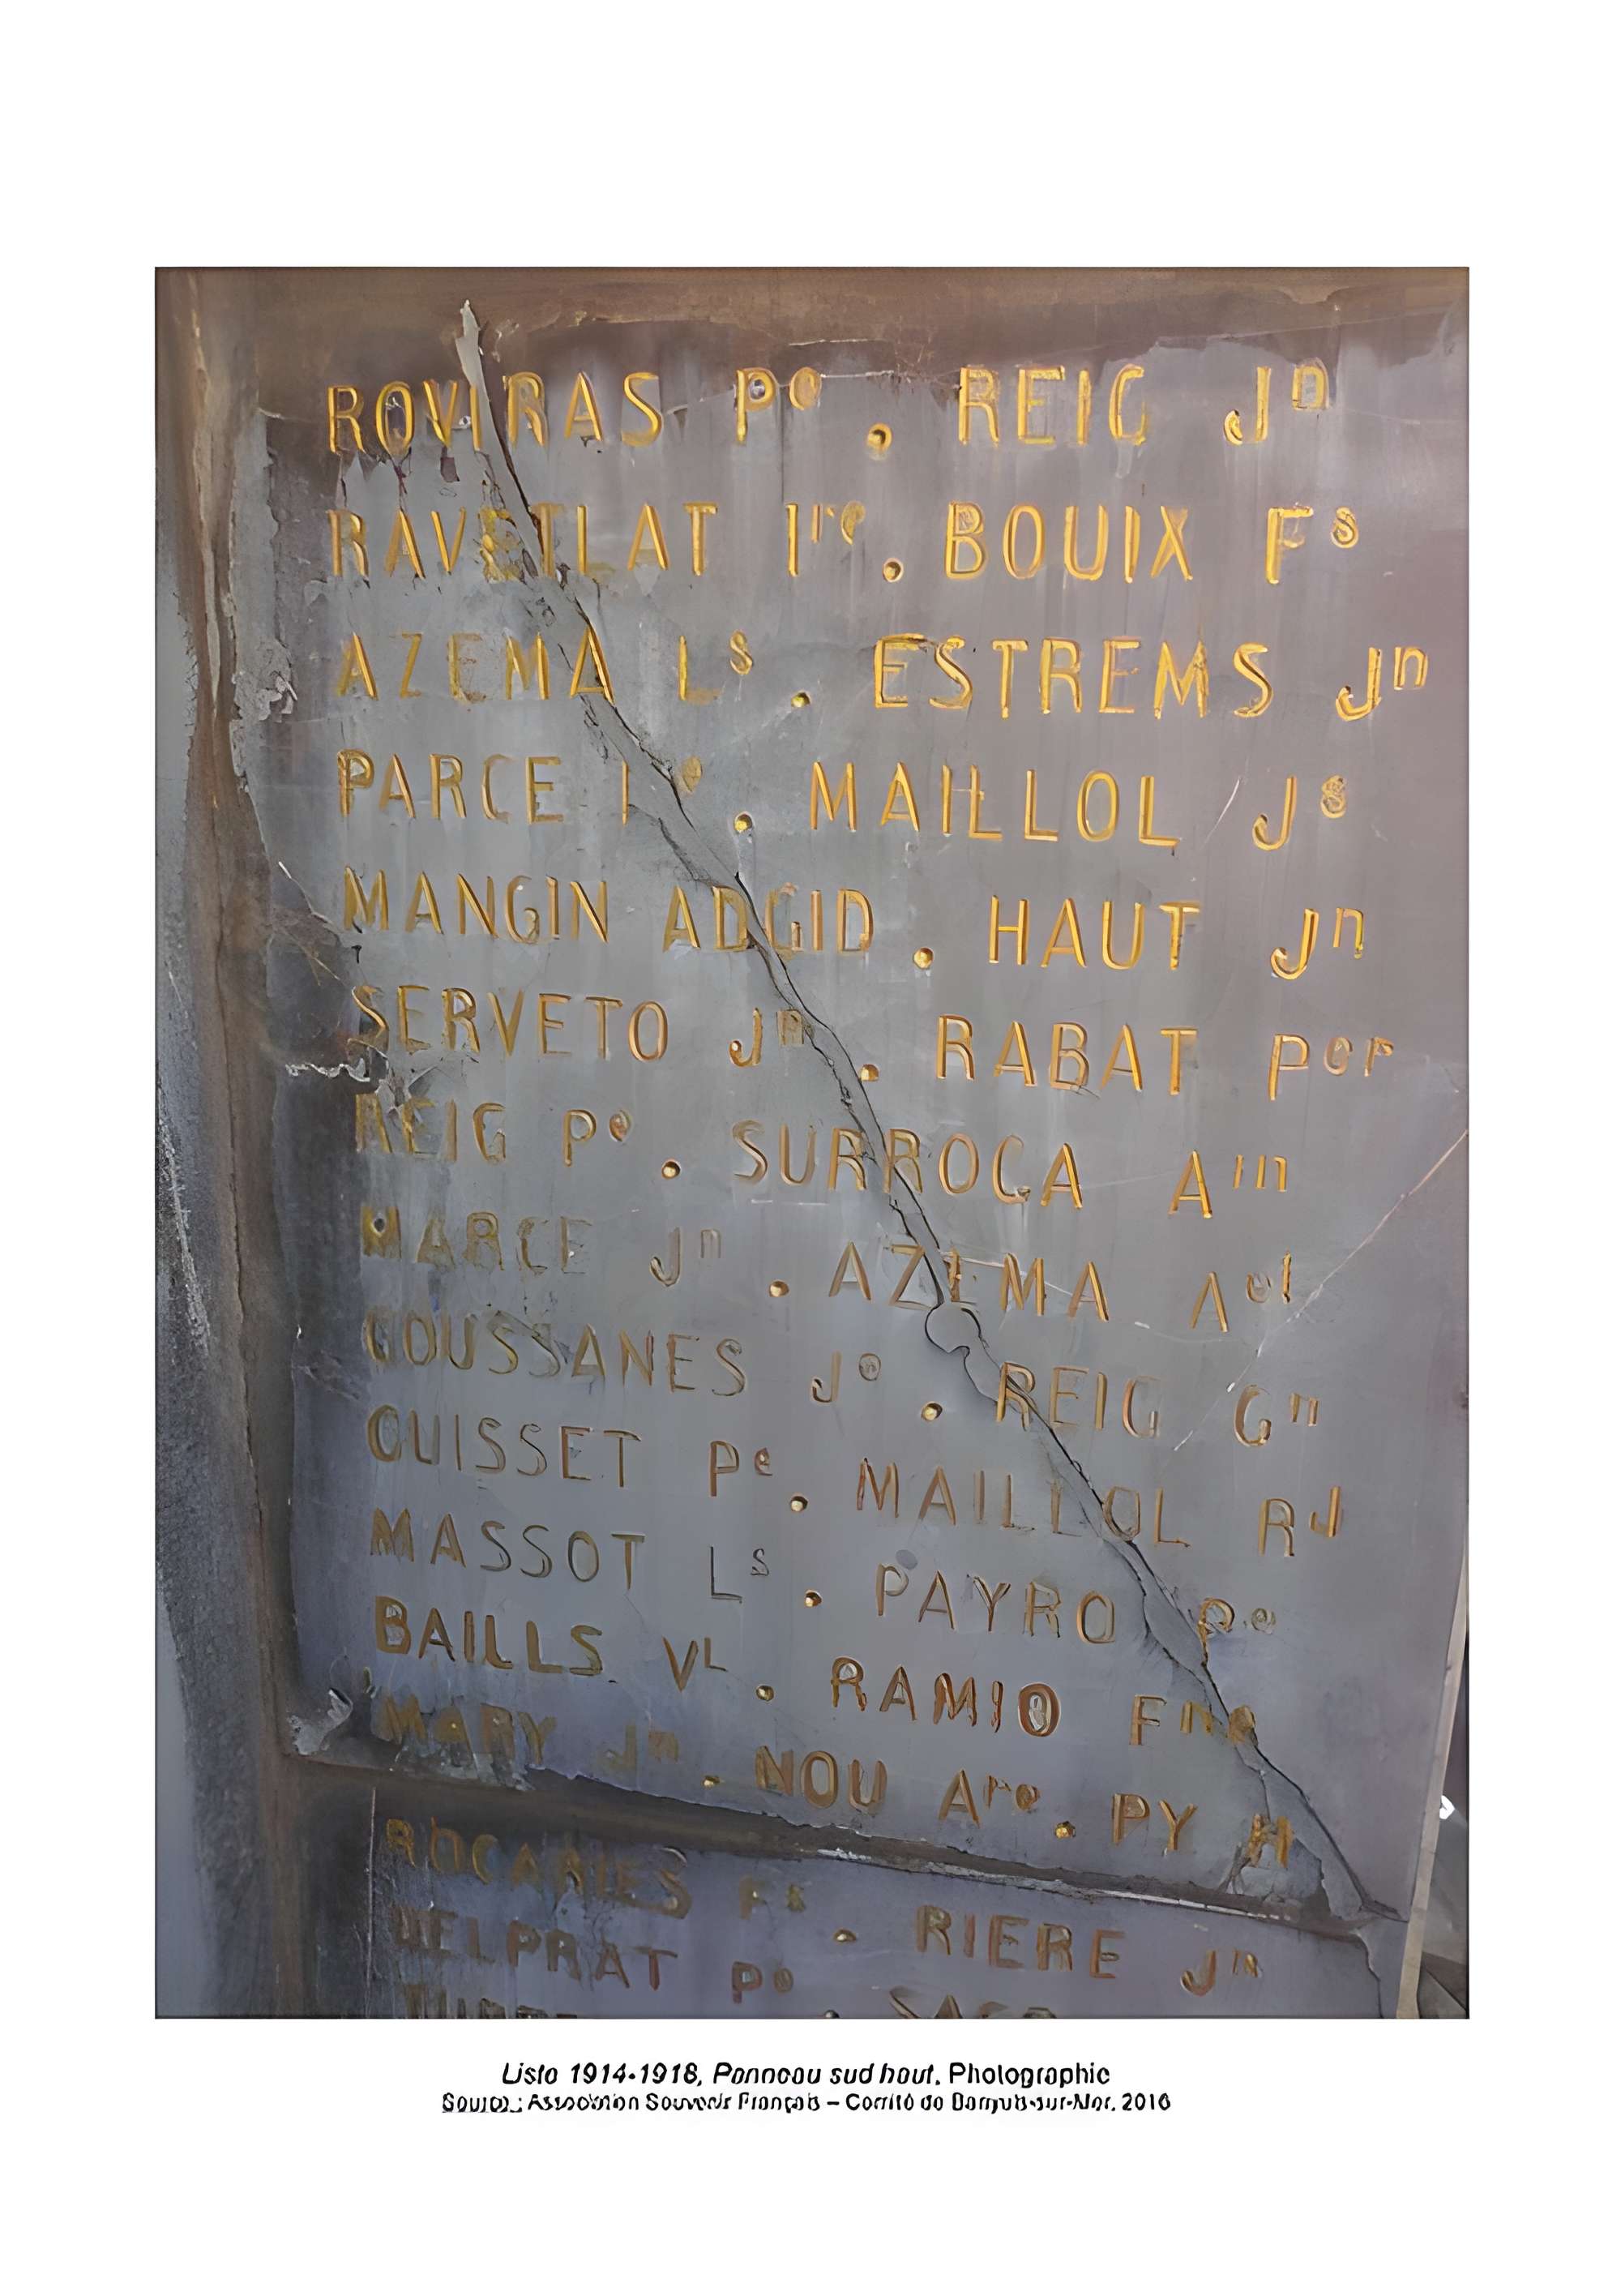 ROVIRAS Pe . REIG Jn
RAVETLAT Ire . BOUIX Fs
AZEMA Ls . ESTREMS Jn
PARCE . MAILLOL Js
MANGIN ADGID . HAUT Jn
SERVETO Jn . RABAT Per
REIG Pe . SURROCA Ain
MARCE Jn . AZEMA Ael
COUSSANES Je . REIG Gn
CUISSET Pe . MAILLOL Rd
MASSOT Ls . PAYRO Pe
BAILLS VL . RAMIO Fne
MARY Jn . NOU Are . PY H
ROCARIES Fs . RIERE Jn
DELPRAT Pe .
Liste 1914-1918, Panneau sud haut. Photographie
Source : Association Souvenir Français – Comité de Banyuls-sur-Mer, 2016